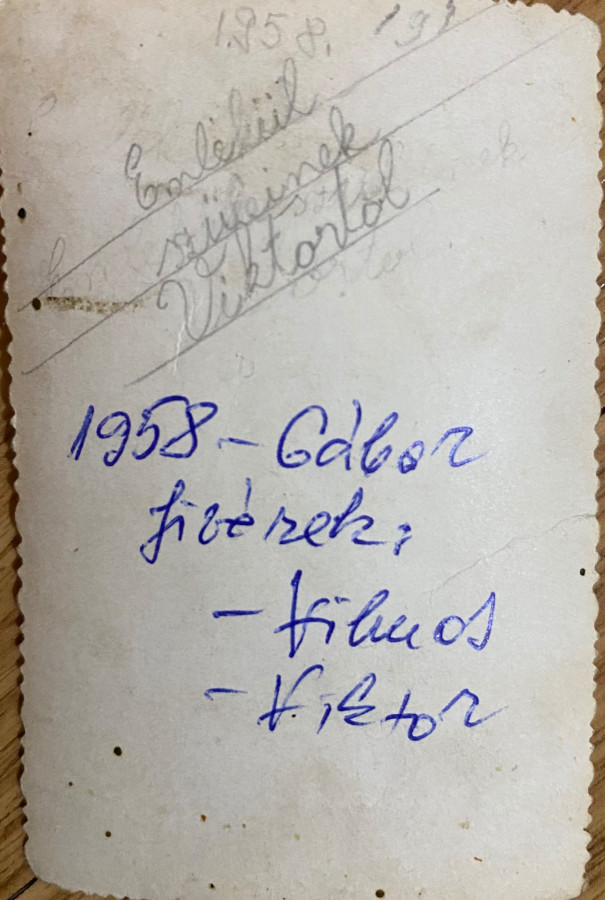 1958.
Emlékül
szüleimnek
Viktortól
1958 - Gábor
fivérek:
- Vilmos
- Viktor